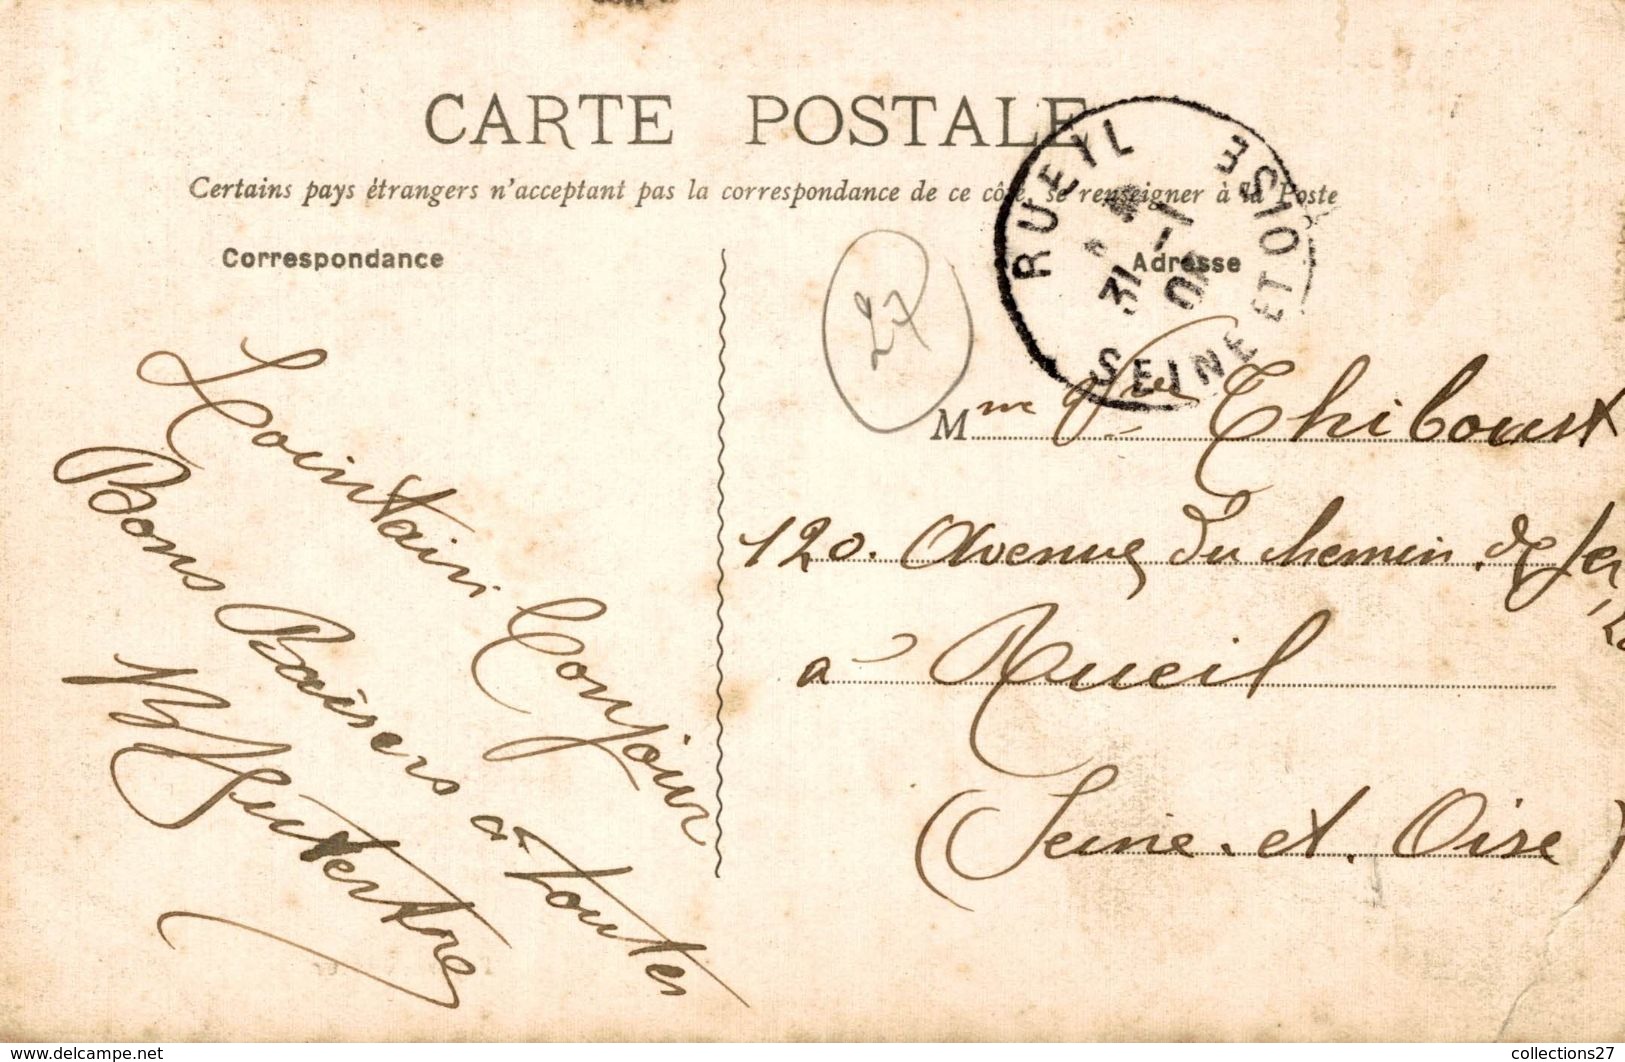 CARTE POSTALE
Certains pays étrangers n'acceptant pas la correspondance de ce côté, se renseigner à la Poste
Correspondance
Adresse
RUEIL
31 -1
SEINE ET OISE
27
Lointain Bonjour
Bons Baisers à toutes
Mme Vve Thiboust
120. Avenue du chemin de fer
à Rueil
(Seine. et. Oise)
www.delcampe.net
collections27